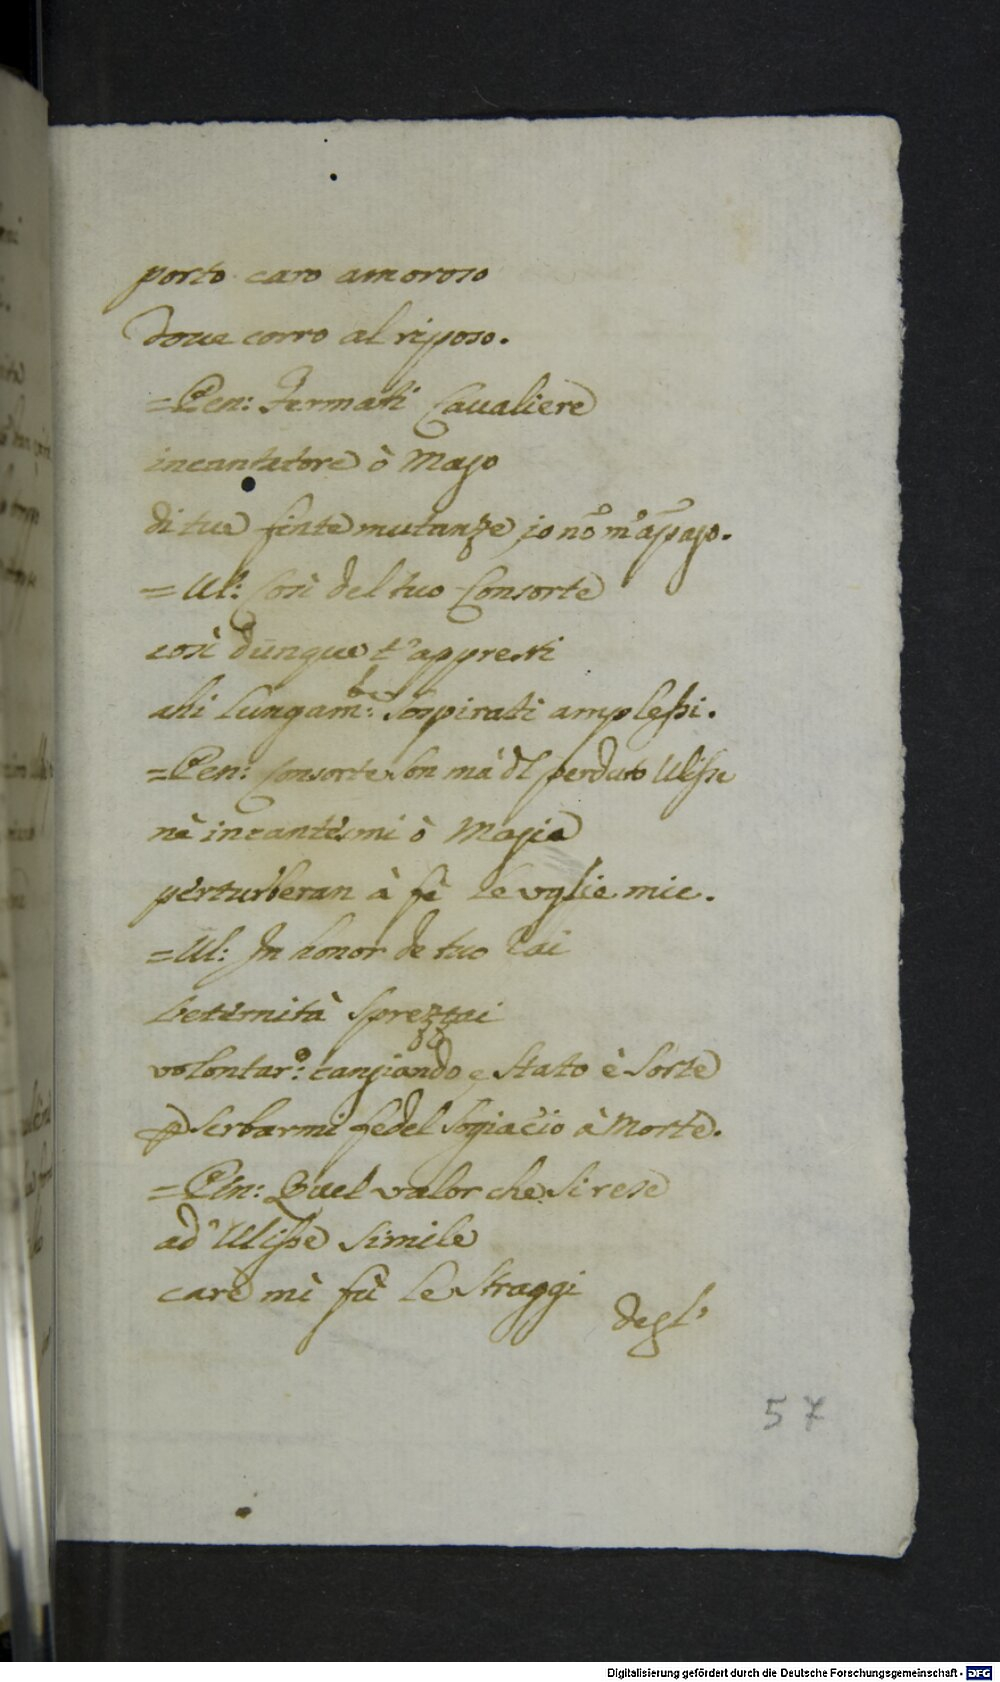 porto caro amoroso
doue corro al riposo.
=Pen: Fermati Caualiere
incantatore ò Mago
di tue finte mutanze io nō m'appago.
=Ul: Cosi del tuo Consorte
cosi dunque t'appressi
ahi lungam:te sospirati amplessi.
=Pen: Consorte son mà dl perduto Ulisse
nè incantesmi ò Magia
perturberan à fè le voglie mie.
=Ul: In honor de tuo rai
l'eternità sprezzai
volontar:o cangiando e Stato è Sorte
p serbarmi fedel sogiacio à Morte.
=Pen: Quel valor che si rese
ad Ulisse simile
care mi fà le straggi
degl'
57
Digitalisierung gefördert durch die Deutsche Forschungsgemeinschaft - DFG